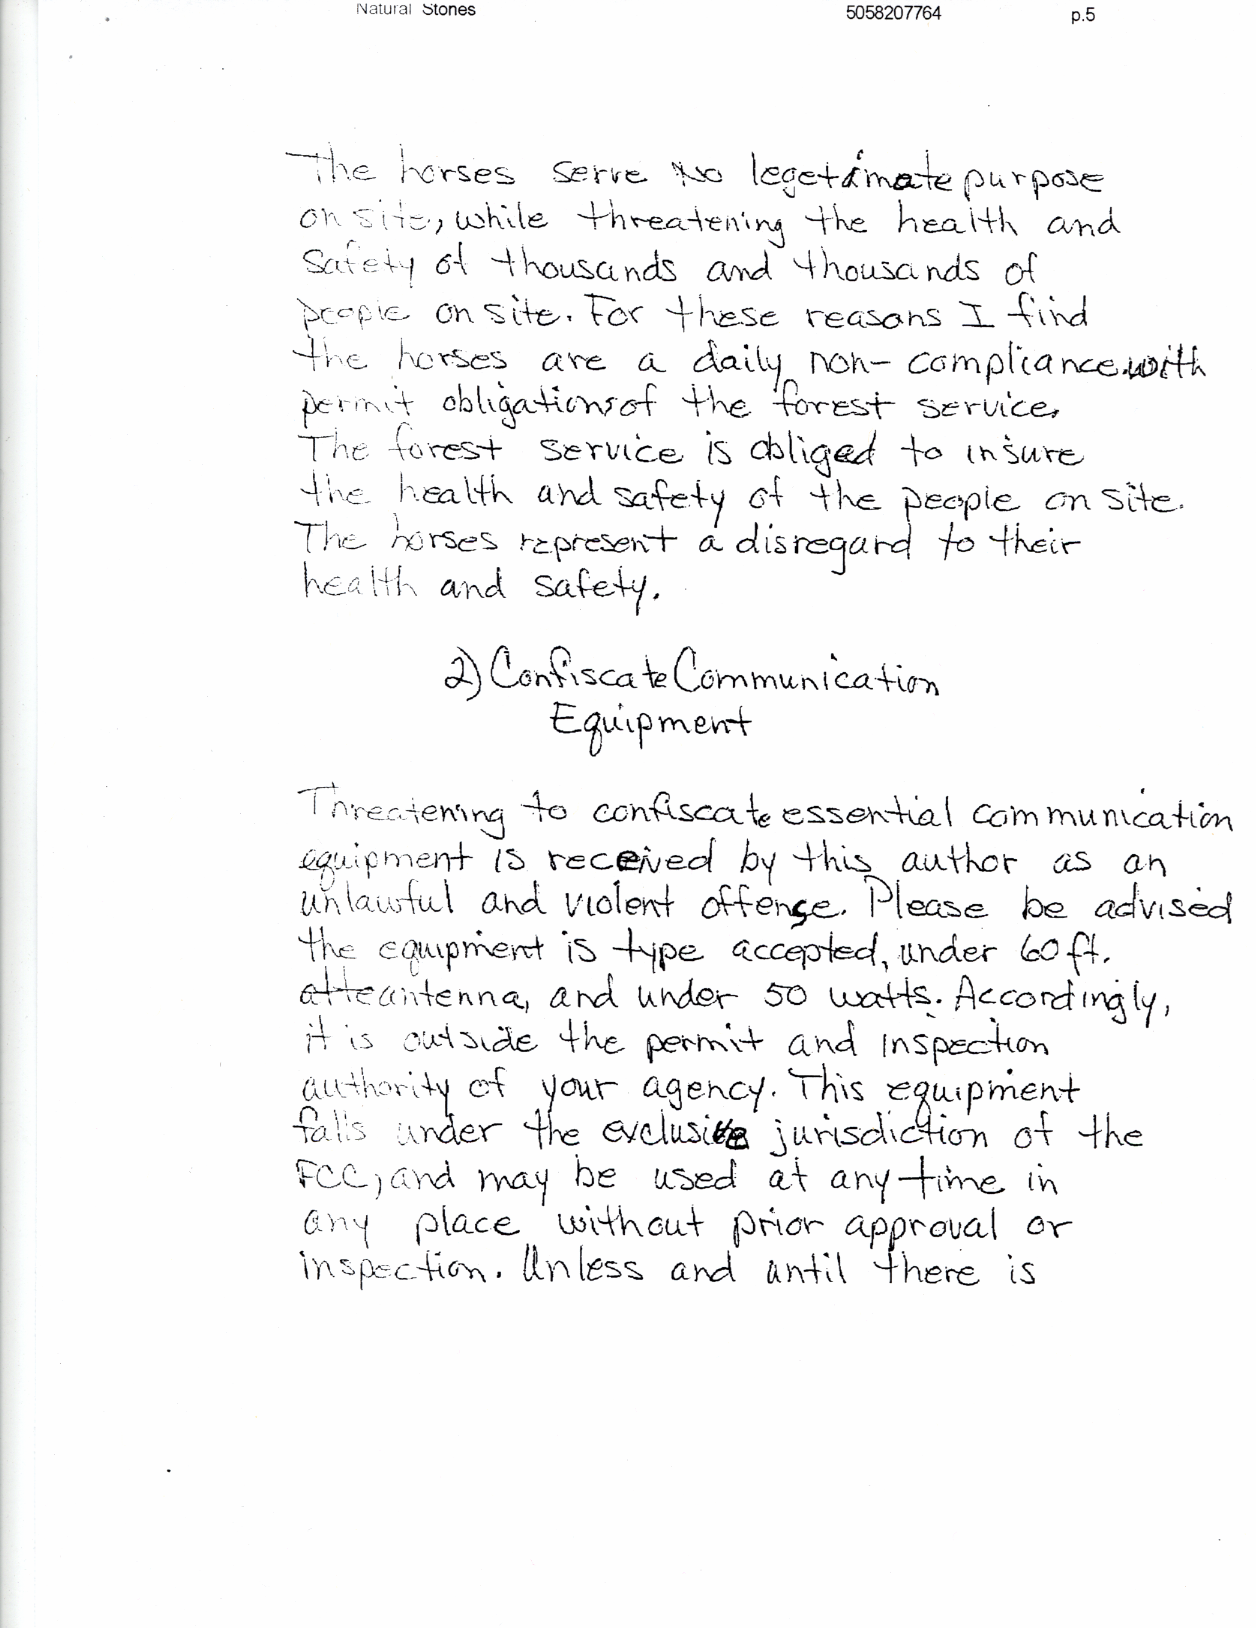 Natural Stones 5058207764 p.5
The horses serve no legetimate purpose
on site, while threatening the health and
safety of thousands and thousands of
people on site. For these reasons I find
the horses are a daily non-compliance with
permit obligations of the forest service.
The forest service is obliged to insure
the health and safety of the people on site.
The horses represent a disregard to their
health and safety.
2) Confiscate Communication
Equipment
Threatening to confiscate essential communication
equipment is received by this author as an
unlawful and violent offense. Please be advised
the equipment is type accepted, under 60 ft.
antenna, and under 50 watts. Accordingly,
it is outside the permit and inspection
authority of your agency. This equipment
falls under the exclusive jurisdiction of the
FCC, and may be used at any time in
any place without prior approval or
inspection. Unless and until there is